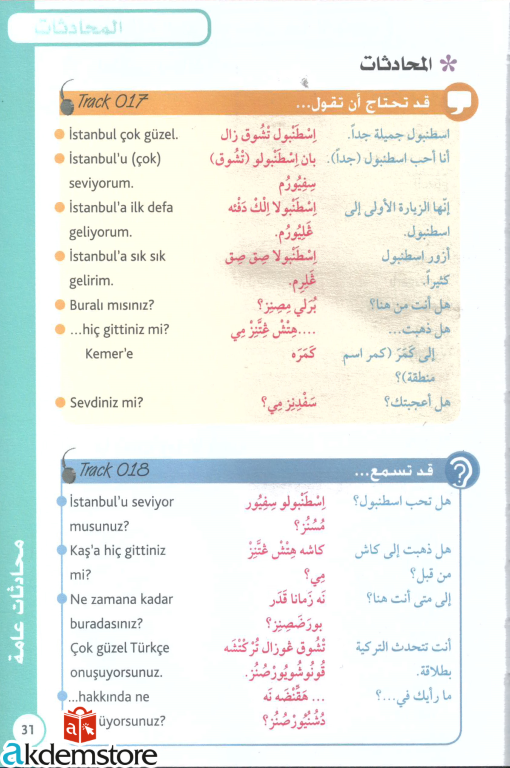 المحادثات
* المحادثات
قد تحتاج أن تقول... Track 017
İstanbul çok güzel. إسْطَنْبول تْشُوق زال اسطنبول جميلة جداً.
İstanbul'u (çok) بان إسْطَنْبولو (تْشُوق) أنا أحب اسطنبول (جداً).
seviyorum. سِفِيُورُم
İstanbul'a ilk defa إسْطَنْبولا إلْكْ دَفْئه إنّها الزيارة الأولى إلى
geliyorum. غَلِيُورُم. اسطنبول.
İstanbul'a sık sık إسْطَنْبولا صِق صِق أزور اسطنبول
gelirim. غَلِرِم. كثيراً.
Buralı mısınız? بُرَلي مِصِنِز؟ هل أنت من هنا؟
...hiç gittiniz mi? ....هِتْش غِتَّنِزْ مِي هل ذهبت...
Kemer'e كَمَرَه إلى كَمَرَ (كمر اسم
منطقة)؟
Sevdiniz mi? سَفْدِنِز مِي؟ هل أعجبتك؟
قد تسمع... Track 018
İstanbul'u seviyor إسْطَنْبولو سِفِيُور هل تحب اسطنبول؟
musunuz? مُسُنُز؟
Kaş'a hiç gittiniz كاشه هِتْش غْتَّنِزْ هل ذهبت إلى كاش
mi? مِي؟ من قبل؟
Ne zamana kadar نَه زَمانا قَدَر إلى متى أنت هنا؟
buradasınız? بورَضَصِنِز؟
Çok güzel Türkçe تْشُوق غوزال تُرْكْتْشَه أنت تتحدث التركية
onuşuyorsunuz. قُونُوشُويُورْصُنُز. بطلاقة.
...hakkında ne ... هَقِّنْضَه نَه ما رأيك في...؟
üyorsunuz? دُشُنْيُورْصُنُز؟
محادثات عامة
31
akdemstore